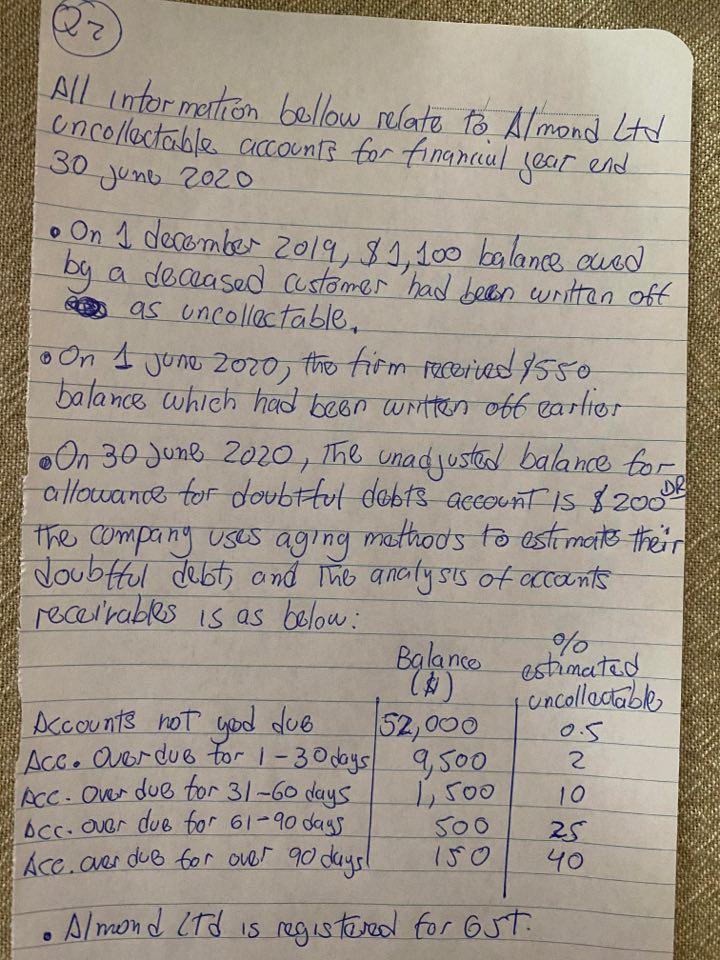 Q2
All information bellow relate to Almond Ltd
uncollectable accounts for financial year end
30 june 2020
• On 1 december 2019, $1,100 balance owed
by a deceased customer had been written off
as uncollectable.
• On 1 june 2020, the firm received $550
balance which had been written off earlier
• On 30 june 2020, The unadjusted balance for
allowance for doubtful debts account is $200 DR
the company uses aging methods to estimate their
doubtful debt, and the analysis of accounts
receivables is as below:
Balance ($) % estimated uncollectable
Accounts not yed due 52,000 0.5
Acc. Overdue for 1-30 days 9,500 2
Acc. over due for 31-60 days 1,500 10
Acc. over due for 61-90 days 500 25
Acc. over due for over 90 days 150 40
• Almond LTd is registered for GST.